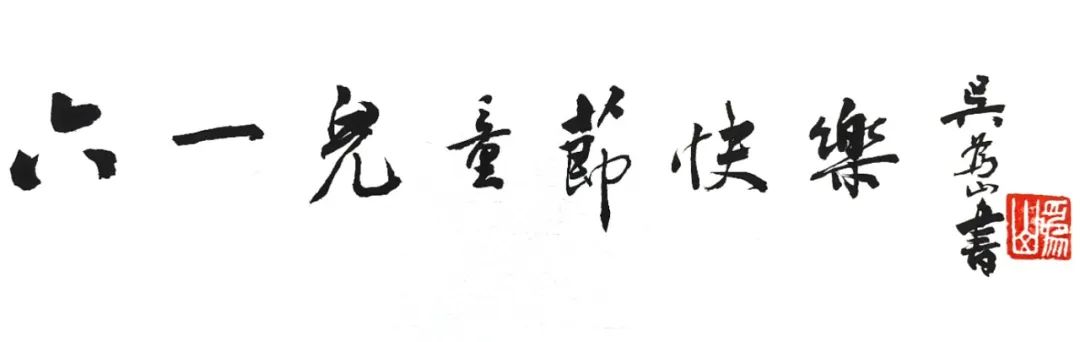 六一兒童節快樂
吳為山書
為山